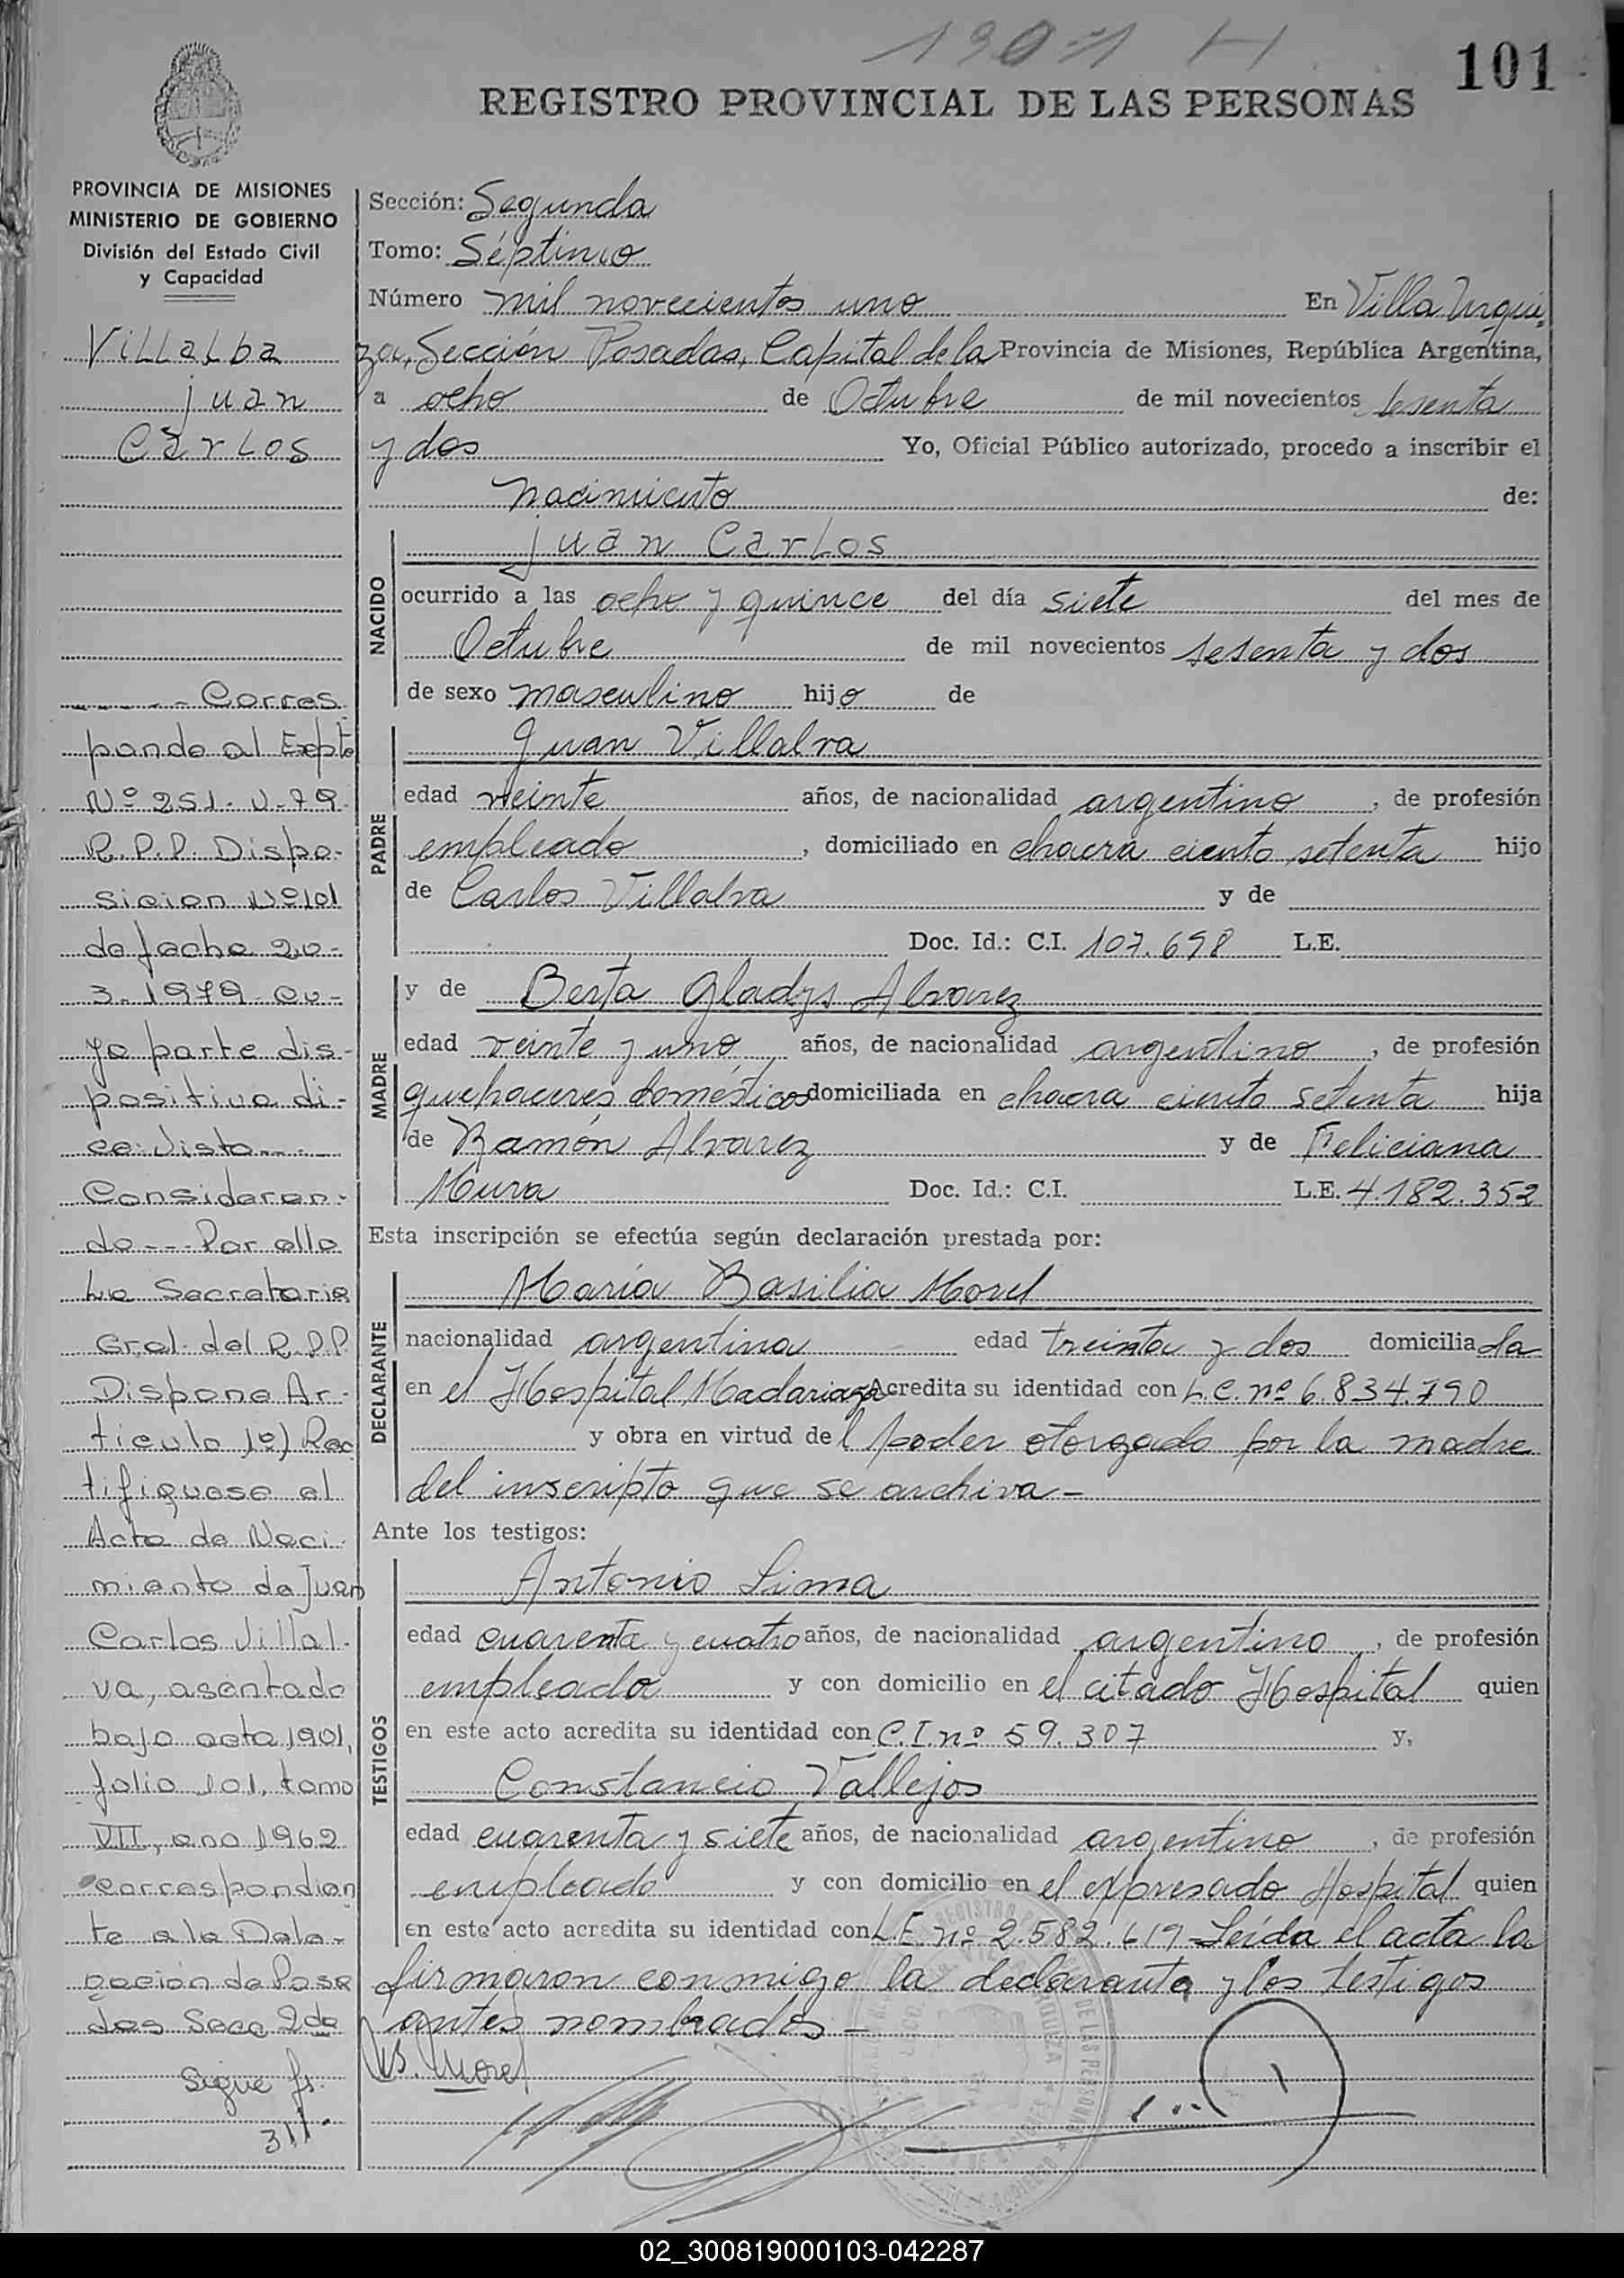 1901 H
101
REGISTRO PROVINCIAL DE LAS PERSONAS
PROVINCIA DE MISIONES
MINISTERIO DE GOBIERNO
División del Estado Civil
y Capacidad
Villalba
juan
Carlos
Corres
ponde al Expte
Nº 251-V-79
R.P.P. Dispo-
sicion Nº 101
de fecha 20-
3-1979 cu-
ya parte dis-
positiva di-
ce: Visto
Consideran-
do --- Por ello
La Secretaria
Gral. del R.P.P.
Dispone Ar-
ticulo 1º) Rec
tifiquese el
Acta de Naci-
miento de Juan
Carlos Villal-
va, asentado
bajo acta 1901,
folio 101, tomo
VII, año 1962
correspondien
te a la Dele-
gación de Posa
das Secc 2da
Sigue fs.
311.
Sección: Segunda
Tomo: Séptimo
Número mil novecientos uno En Villa Urqui
za, Sección Posadas, Capital de la Provincia de Misiones, República Argentina,
a ocho de Octubre de mil novecientos sesenta
y dos Yo, Oficial Público autorizado, procedo a inscribir el
nacimiento de:
NACIDO
juan Carlos
ocurrido a las ocho y quince del día siete del mes de
Octubre de mil novecientos sesenta y dos
de sexo masculino hijo de
PADRE
Juan Villalva
edad veinte años, de nacionalidad argentino, de profesión
empleado, domiciliado en chacra ciento setenta hijo
de Carlos Villalva y de
Doc. Id.: C.I. 107.698 L.E.
MADRE
y de Berta Gladys Alvarez
edad veinte y uno años, de nacionalidad argentino, de profesión
quehaceres domésticos domiciliada en chacra ciento setenta hija
de Ramón Alvarez y de Feliciana
Mura Doc. Id.: C.I. L.E. 4.182.352
Esta inscripción se efectúa según declaración prestada por:
DECLARANTE
María Basilia Morel
nacionalidad argentina edad treinta y dos domiciliada
en el Hospital Madariaga Acredita su identidad con L.C. nº 6.834.790
y obra en virtud del poder otorgado por la madre
del inscripto que se archiva-
Ante los testigos:
TESTIGOS
Antonio Lima
edad cuarenta y cuatro años, de nacionalidad argentino, de profesión
empleado y con domicilio en el citado Hospital quien
en este acto acredita su identidad con C.I. nº 59.307 y,
Constancio Vallejos
edad cuarenta y siete años, de nacionalidad argentino, de profesión
empleado y con domicilio en el expresado Hospital quien
en este acto acredita su identidad con L.E. nº 2.582.619 Leída el acta la
firmaron conmigo la declarante y los testigos
antes nombrados-
B. Morel
02_300819000103-042287